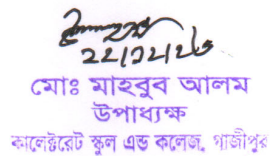 ২২/১২/২৩
মোঃ মাহবুব আলম
উপাধ্যক্ষ
কালেক্টরেট স্কুল এন্ড কলেজ, গাজীপুর